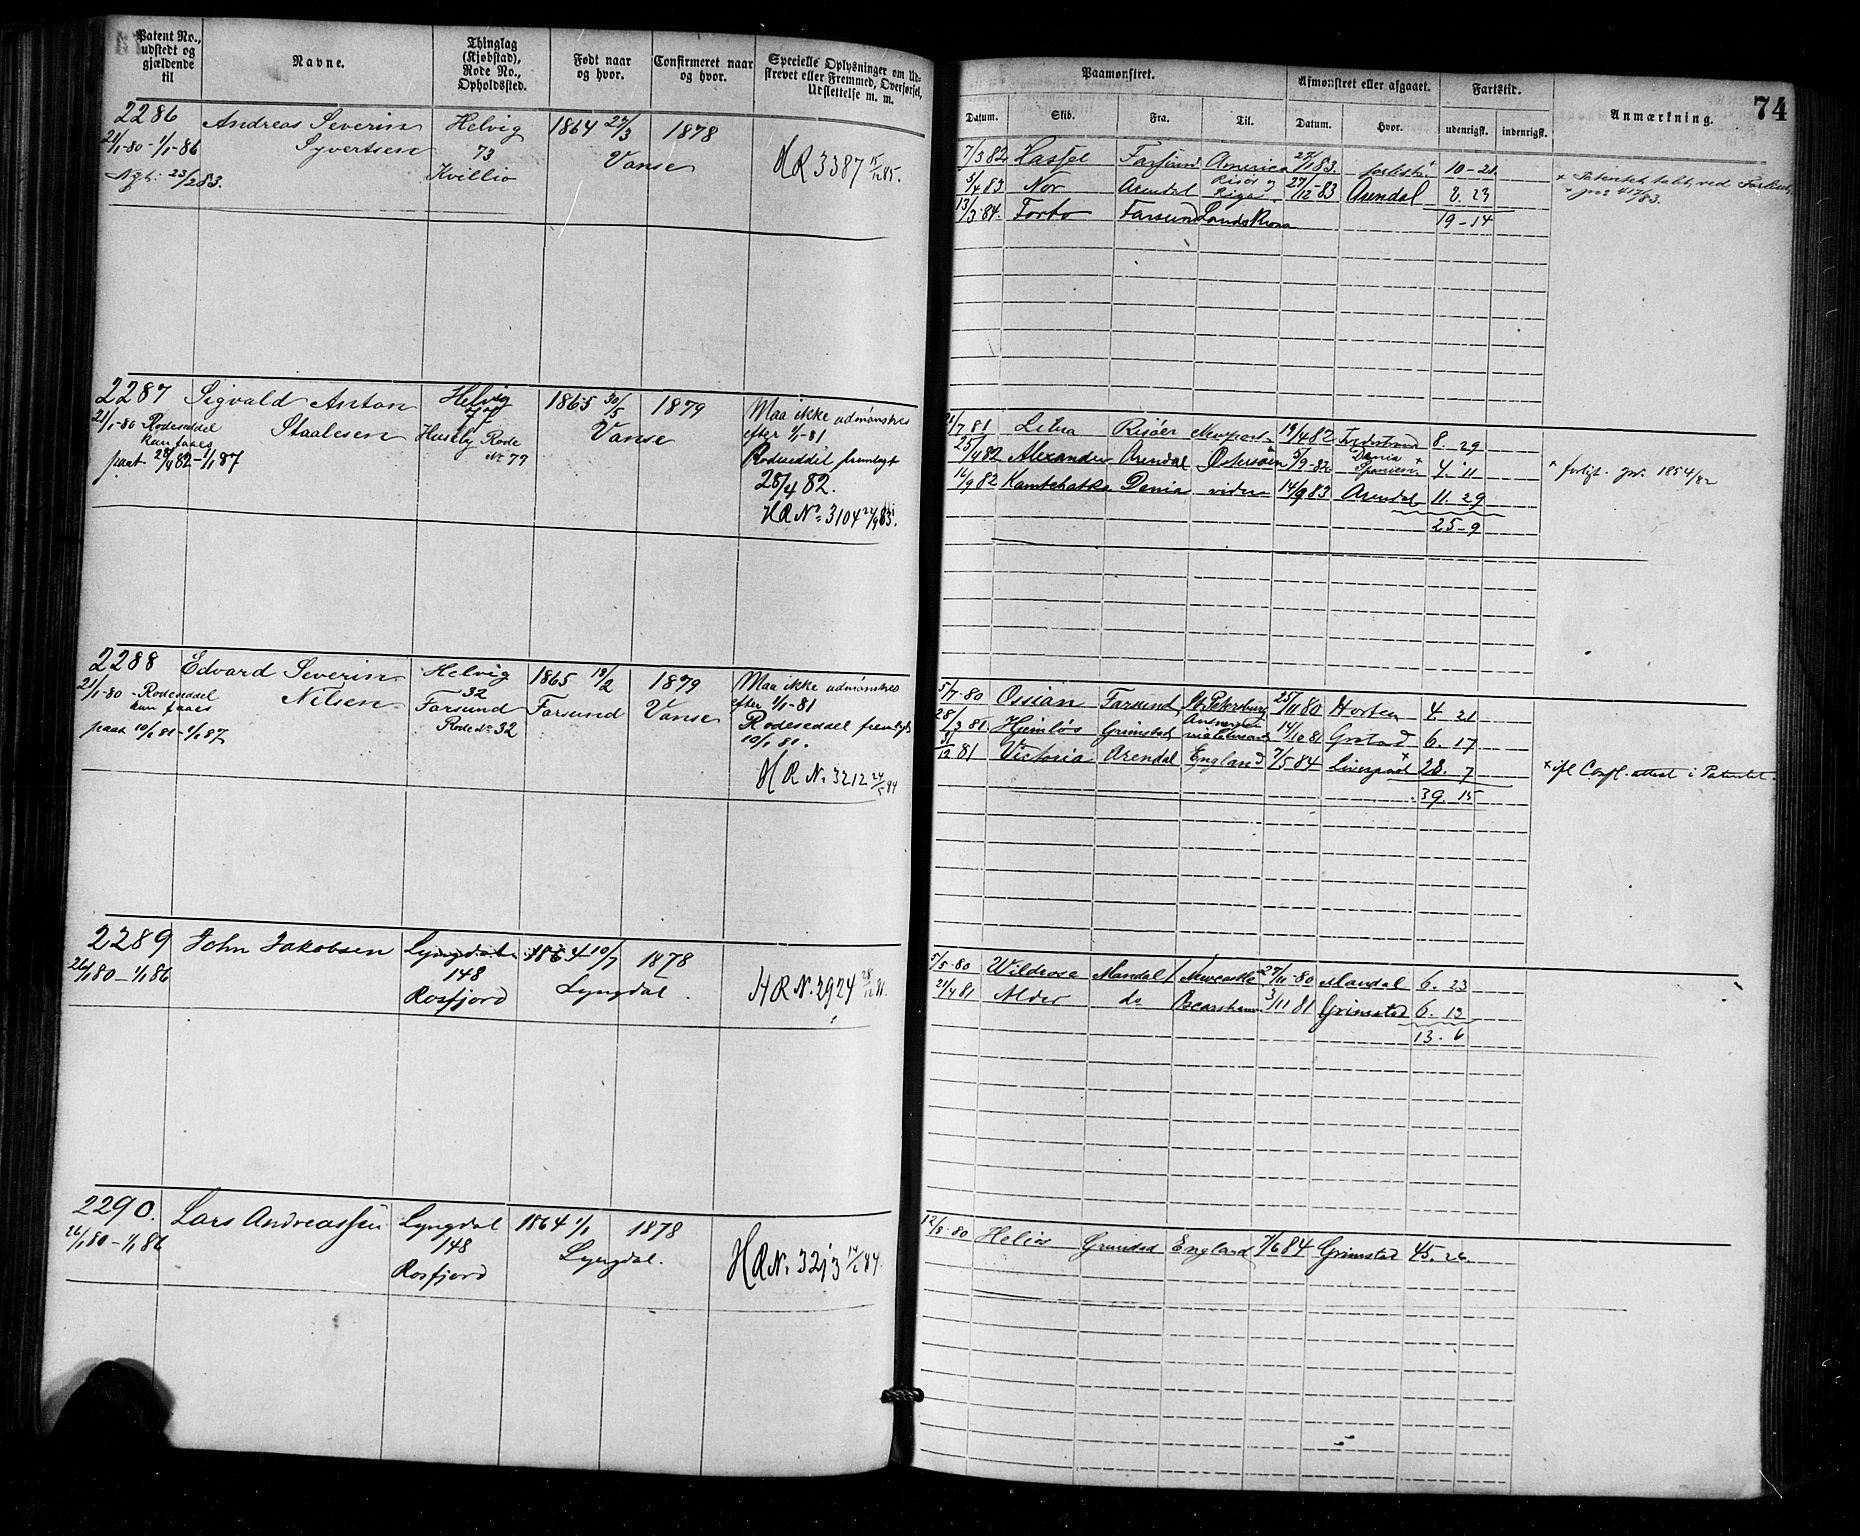 Patent No., udstedt og gjældende til
Navne.
Thinglag (Kjøbstad), Rode No., Opholdssted.
Født naar og hvor.
Confirmeret naar og hvor.
Specielle Oplysninger om Udskrevet eller Fremmed, Overførsel, Udslettelse m. m.
Paamønstret.
Afmønstret eller afgaaet.
Fartstid.
Anmærkning.
74
Datum.
Skib.
Fra.
Til.
Datum.
Hvor.
udenrigsk.
indenrigsk.
2286 Andreas Severin Helvig 1864 27/3 1878
21/1-80-1/1-86 Syvertsen 73 Vanse HR 3387 15/12 85.
23/2 83. Kvillio
7/3 82 Hassel Farsund America 10-21
3/4 83 Nor Arendal Risør og Riga 27/12-83 Arendal 8. 23
13/3 84. Farsund Landskrona 19-14
2287 Sigvald Anton Helvig 1865 30/5 1879 Maa ikke udmønstres
21/1-80 Rodeseddel Staalesen 77 Vanse efter 1/1-81
kan faaes Huseby Rode Rodeseddel fremlagt
paat 28/4 82-1/1 87 No 77 28/4 82.
HR No 3104 83.
7 81 Risöer 19/4 82 8. 29
25/4 82 Alexander Arendal Østersøen 5/9-82 Denia Spanien 4. 11 1854/82
14/9 82 Kamtchatka Denia videre 14/9 83 Arendal 11. 29
25-9
2288 Edvard Severin Helvig 1865 18/2 1879 Maa ikke udmønstres
21/1-80 - Rodeseddel Nilsen 32 Farsund Vanse efter 1/1-81
kan faaes Farsund Rodeseddel fremlagt
paat 10/1 81-1/1 87 Rode No 32 10/1 81.
HR No 3212
5/7-80 Ossian Farsund St. Petersburg 25/11 80 Horten 4. 21
28/3 81 Hjemløs Grimstad 14/10 81 6. 17
31/12 81 Victoria Arendal England 7/5 84 Liverpool 28. 7
39. 15
2289 John Jakobsen Lyngdal 1864 10/7 1878
26/1 80-1/1 86 148 Lyngdal. HR No. 2924 28/12 81.
Rosfjord
5/5-80 Wildrose Mandal Newcastle 27/11-80 Mandal 6. 23
21/4 81 Alder do 3/11 81 Grimstad 6. 13
13. 6
2290. Lars Andreassen Lyngdal 1864 1/1 1878
26/1 80-1/1 86 148 Lyngdal. HR No 3213 84.
Rosfjord
12/8-80 Helios Grimstad England 7/6 84 Grimstad 45. 26